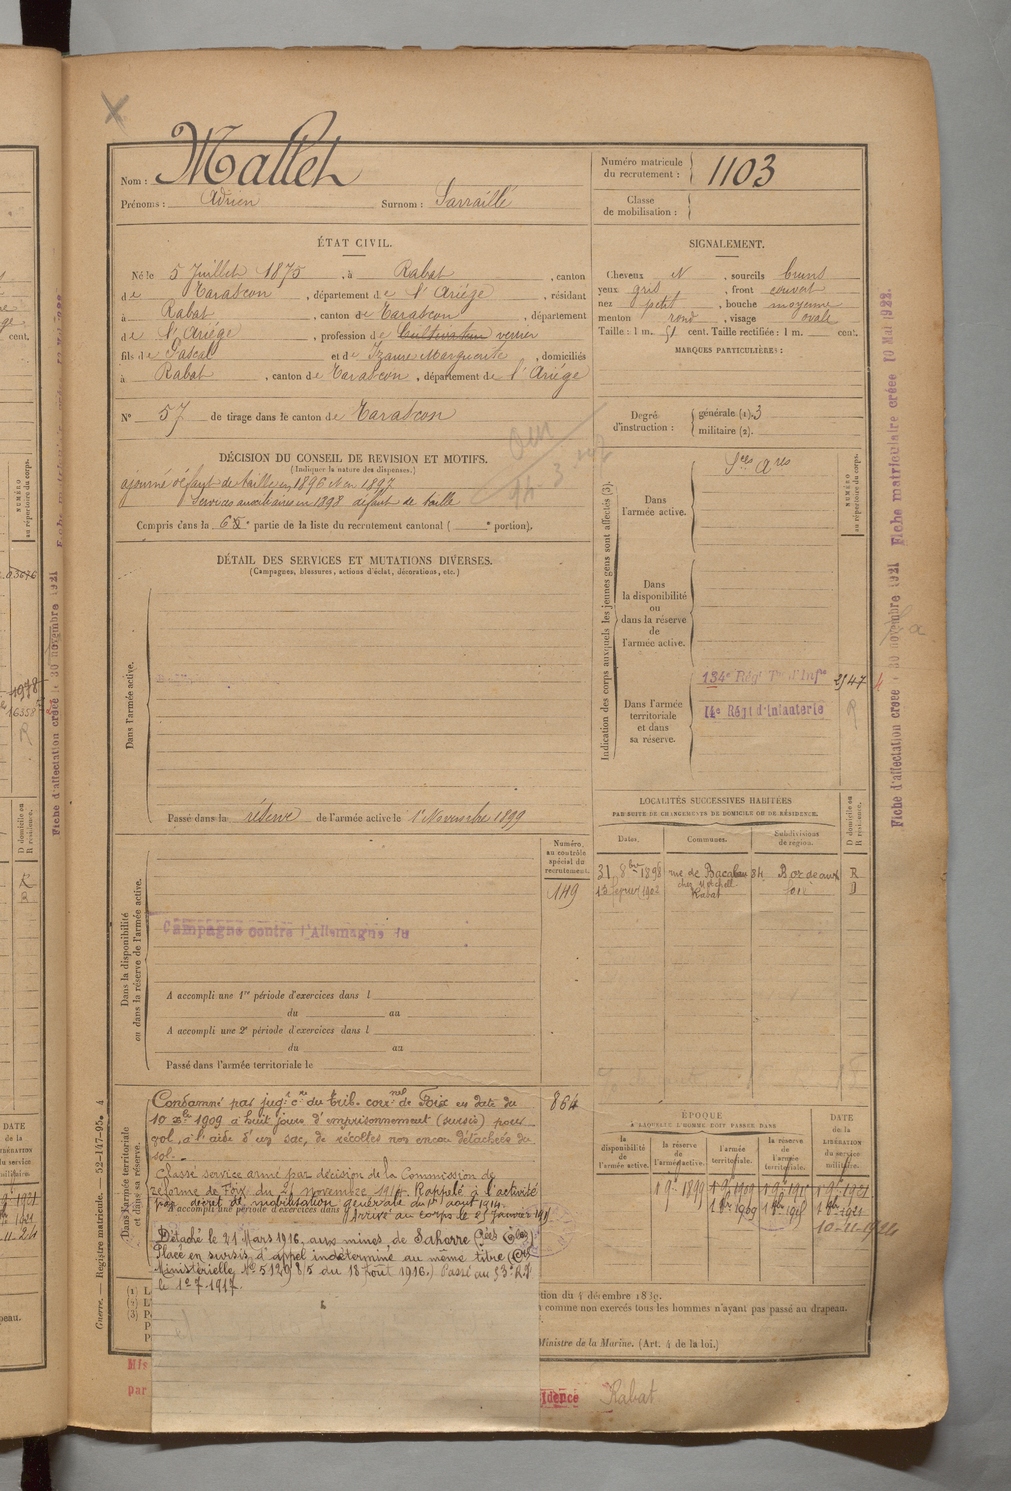 Nom : Mallet
Prénoms : Adrien Surnom : Sarraillé
Numéro matricule du recrutement : 1103
Classe de mobilisation :
ÉTAT CIVIL.
Né le 5 Juillet 1875, à Rabat, canton
de Tarascon, département de l'Ariége, résidant
à Rabat, canton de Tarascon, département
de l'Ariége, profession de Cultivateur verrier
fils de Pascal et de Izaure Marguerite, domiciliés
à Rabat, canton de Tarascon, département de l'Ariége
N° 57 de tirage dans le canton de Tarascon
SIGNALEMENT.
Cheveux N, sourcils bruns
yeux gris, front couvert
nez petit, bouche moyenne
menton rond, visage ovale
Taille : 1 m. 51 cent. Taille rectifiée : 1 m. cent.
MARQUES PARTICULIÈRES :
Degré d'instruction : générale (1). 3
militaire (2).
DÉCISION DU CONSEIL DE REVISION ET MOTIFS.
(Indiquer la nature des dispenses.)
ajourné défaut de taille en 1896 et en 1897
Services auxiliaires en 1898 défaut de taille
Compris dans la 6e partie de la liste du recrutement cantonal ( e portion).
DÉTAIL DES SERVICES ET MUTATIONS DIVERSES.
(Campagnes, blessures, actions d'éclat, décorations, etc.)
Dans l'armée active.
Passé dans la réserve de l'armée active le 1er Novembre 1899
Indication des corps auxquels les jeunes gens sont affectés (3).
Dans l'armée active.
Sces Ares
NUMÉRO au répertoire du corps.
Dans la disponibilité ou dans la réserve de l'armée active.
Dans l'armée territoriale et dans sa réserve.
134e Régt Tal d'Infie
14e Régt d'Infanterie
LOCALITÉS SUCCESSIVES HABITÉES
PAR SUITE DE CHANGEMENTS DE DOMICILE OU DE RÉSIDENCE.
Dates. Communes. Subdivisions de région. D domicile ou R résidence.
31 8bre 1898 rue de Bacalan 84 Bordeaux R
Rabat Foix D
Dans la disponibilité ou dans la réserve de l'armée active.
Numéro au contrôle spécial du recrutement.
149
Campagne contre l'Allemagne du
A accompli une 1re période d'exercices dans l
du au
A accompli une 2e période d'exercices dans l
du au
Passé dans l'armée territoriale le
Dans l'armée territoriale et dans sa réserve.
864
Condamné par jugt cre du trib. cornel de Foix en date du
10 Xbre 1909 à huit jours d'emprisonnement (sursis) pour
vol, à l'aide d'un sac, de récoltes non encore détachées du
sol.
Classé service armé par décision de la Commission de
réforme de Foix du 21 novembre 1914. Rappelé à l'activité
par décret de mobilisation générale du 1er août 1914.
A accompli une période d'exercices dans
Arrivé au corps le 25 Janvier 191
Détaché le 21 Mars 1916, aux mines de Sahorre
Placé en sursis d'appel indéterminé au même titre
Ministérielle N° 5129 8/5 du 18 août 1916.) Passé au 53e R.I
le 1er 7. 1917.
ÉPOQUE
A LAQUELLE L'HOMME DOIT PASSER DANS
la disponibilité de l'armée active. la réserve de l'armée active. l'armée territoriale. la réserve de l'armée territoriale.
DATE de la LIBÉRATION du service militaire.
1 9e 1899
10-11-1924
tion du 4 décembre 1889.
comme non exercés tous les hommes n'ayant pas passé au drapeau.
Ministre de la Marine. (Art. 4 de la loi.)
Mis
par
idence Rabat
Guerre. — Registre matricule. — 52-147-95. 4
Fiche d'affectation créée le 30 novembre 1921 Fiche matriculaire créée 10 Mai 1922.